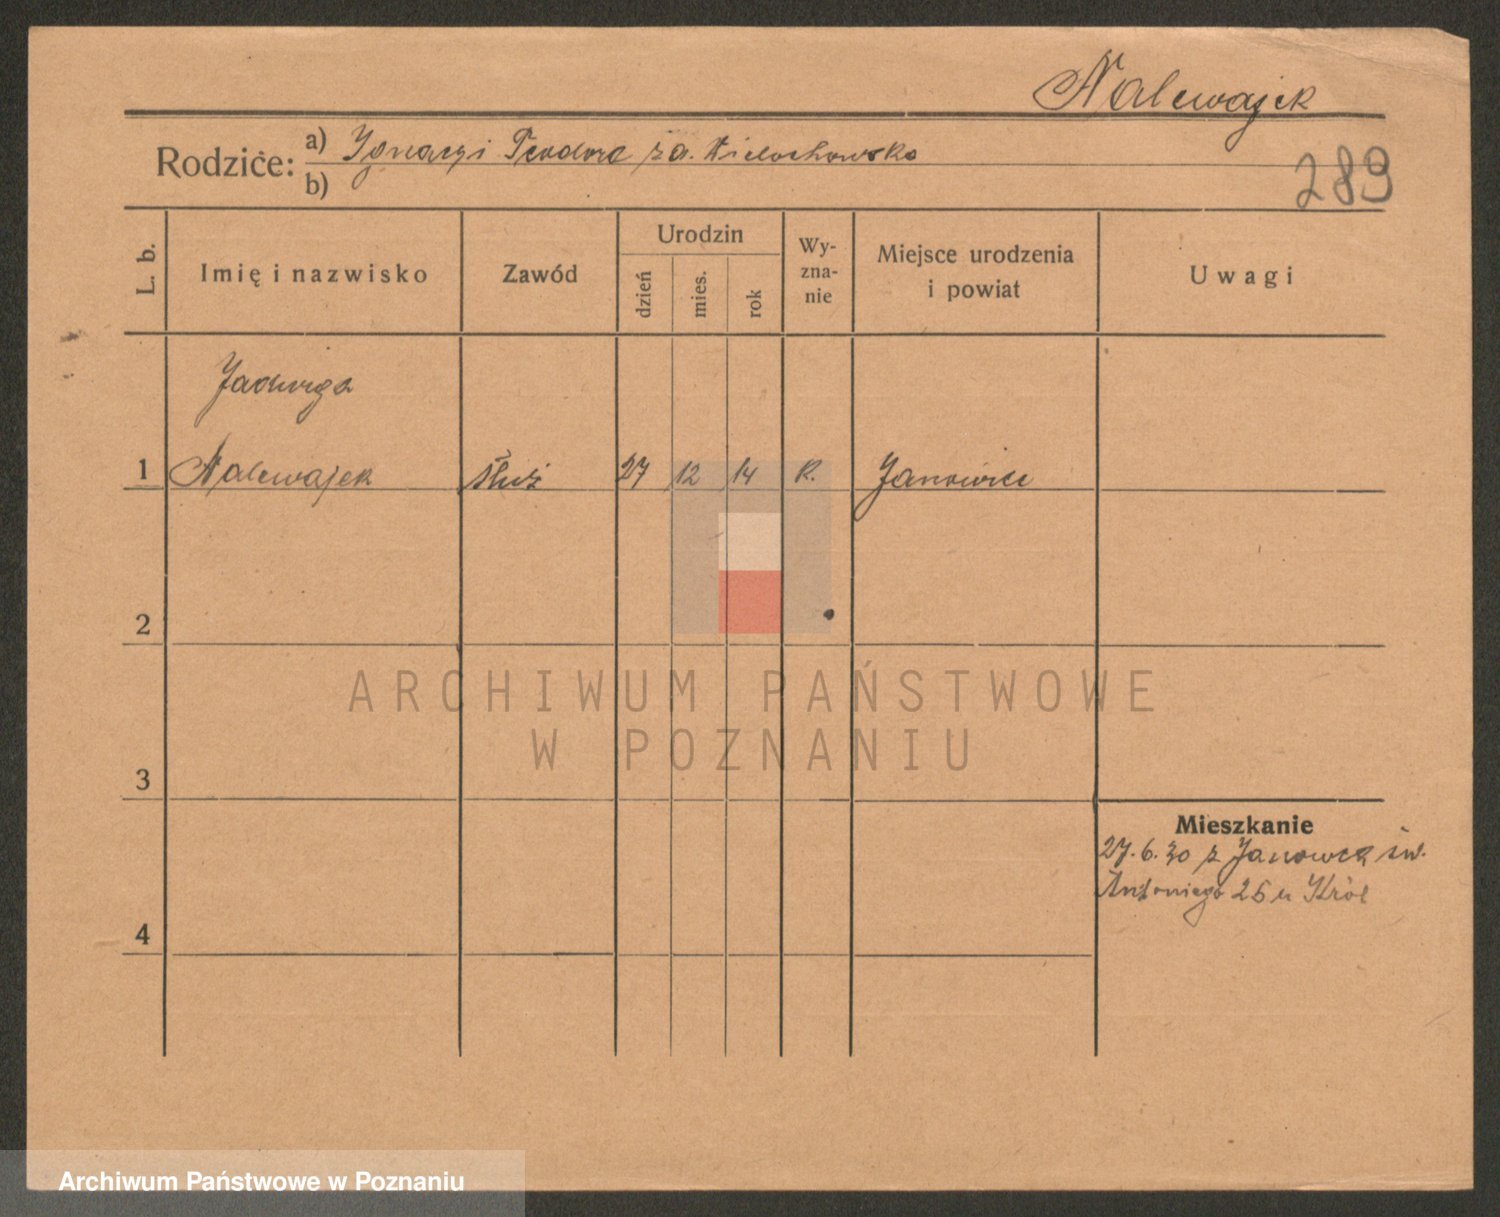 Nalewajek
Rodzice: a) Ignacyi Teodora za. Wielochowska
b)
289
L. b. Imię i nazwisko Zawód Urodzin dzień mies. rok Wy-zna-nie Miejsce urodzenia i powiat Uwagi
Jadwiga
1 Nalewajek służ 27 12 14 R. Janowiec
2
ARCHIWUM PAŃSTWOWE
W POZNANIU
3
Mieszkanie
27. 6. 30 z Janowca św.
Antoniego 25 u Król
4
Archiwum Państwowe w Poznaniu